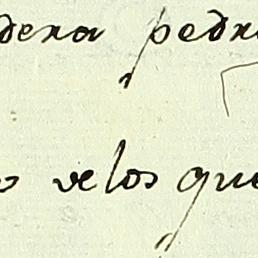 dera pedr
o de los que